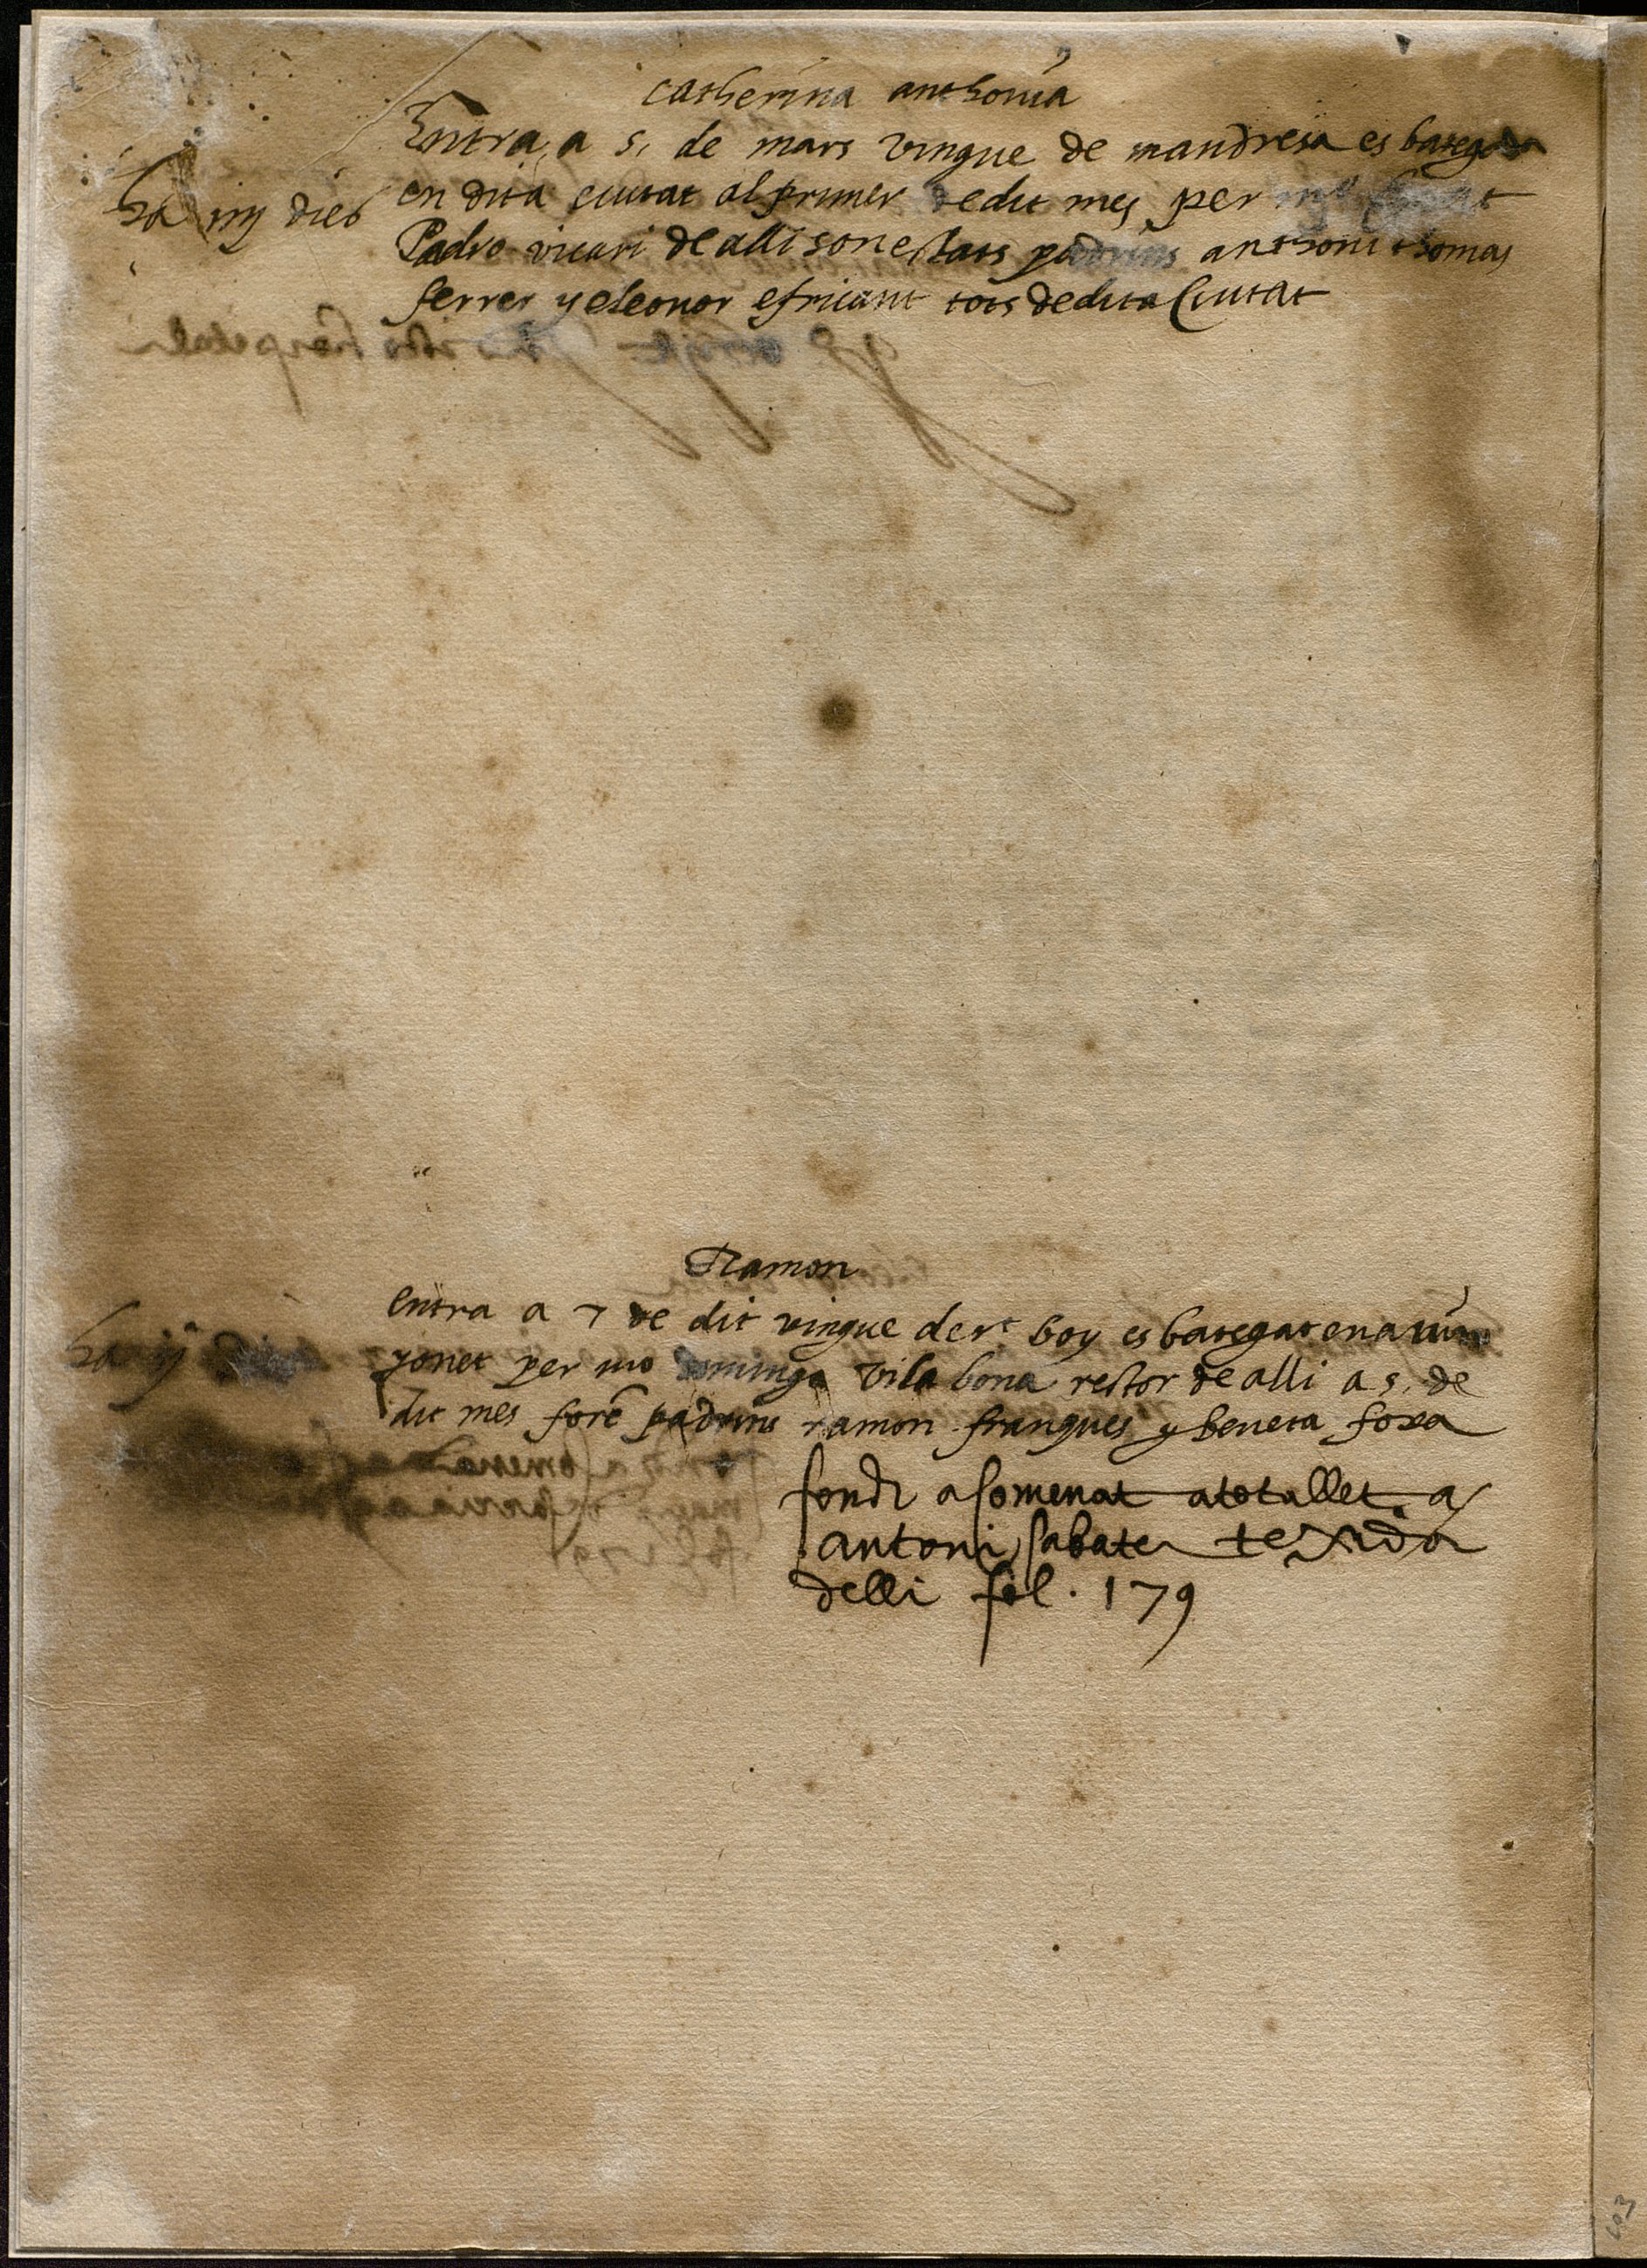 catherina anthonia
Entra a 5. de mars vingue de mandresa es bategada
en dita ciutat al primer de dit mes per
Padro vicari de alli son estats padrins anthoni thomas
ferrer y eleonor tots de dita Ciutat
ha iiij dies
Ramon
entra a 7 de dit vingue de st boy es bategat en
per mo domingo vila bona rector de alli a 5. de
dit mes fore padrins ramon franques y beneta foxa
ha ij
fonch a somenat a
antoni sabater texidor
delli fol. 179